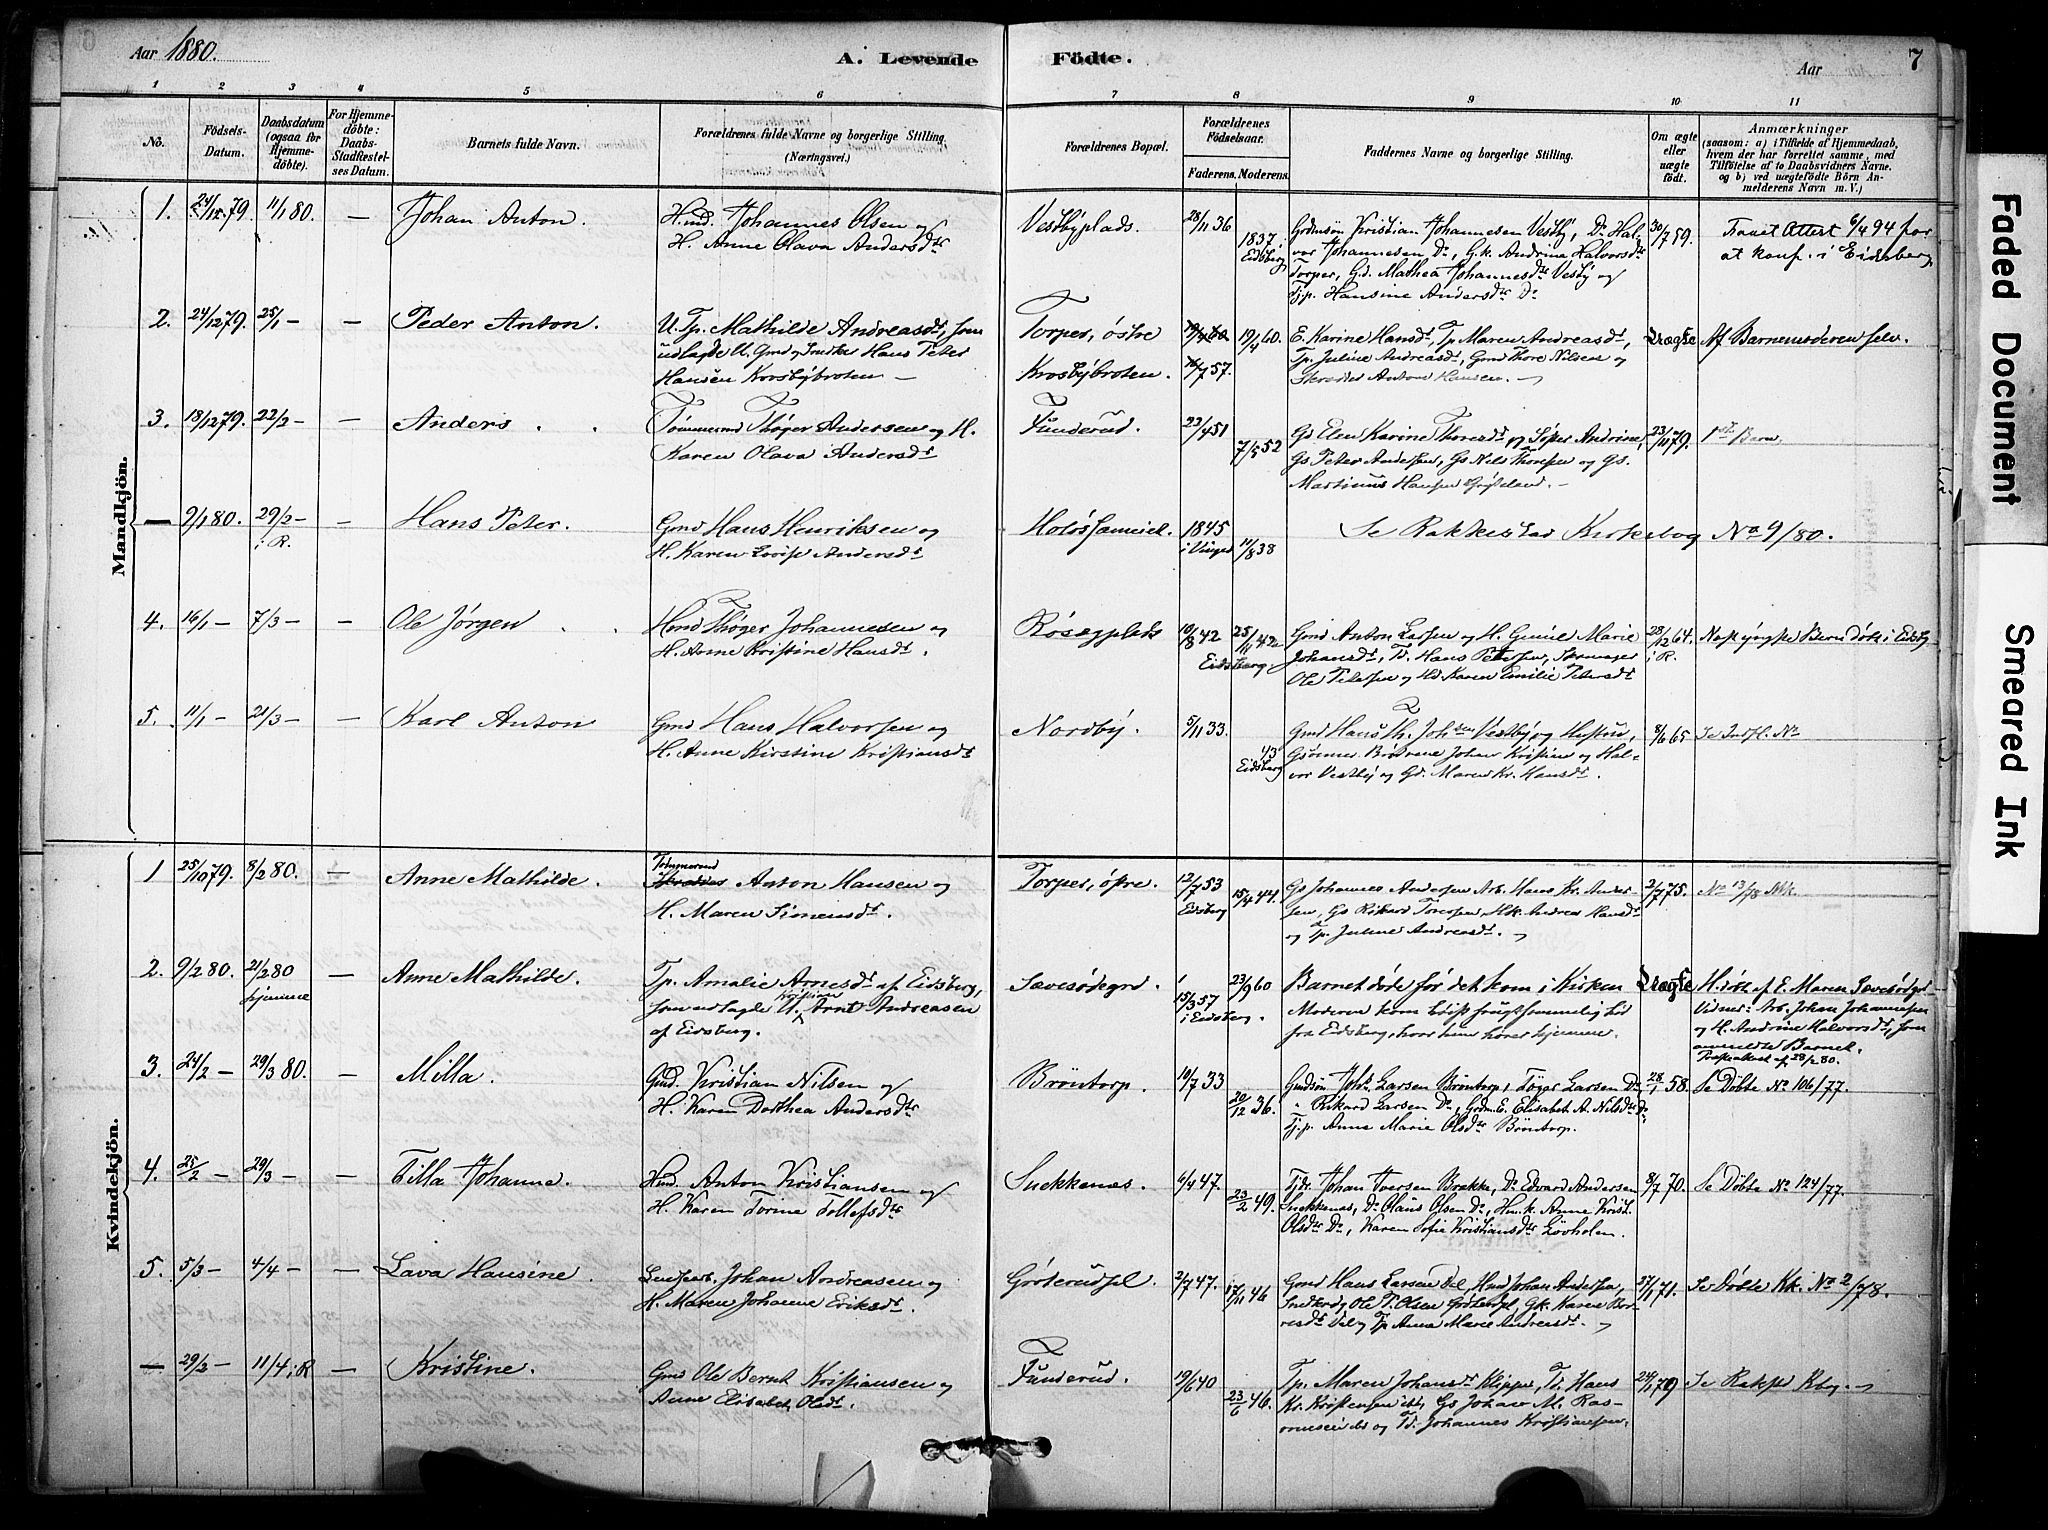 Aar 1880.
A. Levende Födte.
Aar
7
1 2 3 4 5 6 7 8 9 10 11
No.
Födsels-
Datum.
Daabsdatum
(ogsaa for
Hjemme-
döbte).
For Hjemme-
döbte:
Daabs-
Stadfæstel-
ses Datum.
Barnets fulde Navn.
Forældrenes fulde Navne og borgerlige Stilling.
(Næringsvei.)
Forældrenes Bopæl.
Forældrenes
Födselsaar.
Faderens. Moderens.
Faddernes Navne og borgerlige Stilling.
Om ægte
eller
uægte
födt.
Anmærkninger
(saasom: a) i Tilfælde af Hjemmedaab,
hvem der har forrettet samme, med
Tilföielse af to Daabsvidners Navne.
og b) ved uægtefödte Börn An-
melderens Navn m. V.)
Mandkjön.
1. 24/12 79. 11/1 80. — Johan Anton
Hmd. Johannes Olsen og
H. Anne Olava Andersdtr
Vestbyplads. 28/11 36 1837 i
Eidsberg
Grdmsön Kristian Johannesen Vestby, Do Hal-
vor Johannesen Do, G.k. Andrine Halvorsdtr
Torper, G.d. Mathea Johannesdtr Vesby og
Tj.p. Hansine Andersdtr Do
30/7 59.
Faaet Attest 6/4 94 for
at konf. i Eidsberg
2. 24/12 79. 25/1 — — Peder Anton.
U. Tp. Mathilde Andreasdt, som
udlagde U. Gmd og Snedker Hans Peter
Hansen Krosbybroten —
Torper, östre
Krosbybroten. 16/7 57. 19/4 60.
E. Karine Hansdt, Tp Maren Andreasdt,
Tp. Juline Andreasdt, Gmd Thore Nilsen og
Skrædder Anton Hansen. —
Uægte
Af Barnemoderen selv.
3. 18/12 79. 22/2 — — Anders
Tømmermd Thøger Andersen og H.
Karen Olava Andersdt
Funderud. 23/4 51 7/5 52
Gd Elen Karine Thoresdt og Søster Andrine,
Gs Peter Andersen, Gs Nils Thoresen og Gs.
Martinus Hansen
23/11 79.
1ste Barn
— 9/1 80. 29/2 —
i R. — Hans Peter.
Gmd Hans Henriksen og
H. Karen Lovise Andersdt
1845
i Vinger 11/8 38
Se Rakkestad Kirkebog No 9/80.
4. 16/1 — 7/3 — — Ole Jørgen
Hmd Thøger Johannesen og
H. Anne Kristine Hansdt.
Røsegplads 10/8 42 25/11 42
Eidsberg.
Gmd Anton Larsen og H. Gunil Marie
Johansdt, Td. Hans Petersen, Skomager
Ole Petersen og Hd Karen Emilie Petersdt
28/12 64.
i R.
Næstyngste Barn døbt i Eidsbg.
5. 11/1 — 21/3 — — Karl Anton
Gmd Hans Halvorsen og
H. Anne Kirstine Kristiansdt
Nordby. 5/11 33. 43
Eidsberg
Gmd Hans Th. Johsen Vestby og Hustru,
Gsønner Brødrene Johan Kristian og Hal-
vor Vestby og Gd. Maren Kr. Hansdt.
8/6 65
Se No
Kvindekjön.
1 25/10 79. 8/2 80. — Anne Mathilde.
Tømmermd
Anton Hansen og
H. Maren Simensdt.
Torper, østre. 12/7 53
Eidsberg 15/4 44.
Gs Johannes Andersen Arb. Hans Kr. Ander-
sen, Gs Rikard Toresen Hk. Andrea Hansdt
og Tp. Juline Andreasdt.
2/7 75.
No 13/78 Mk.
2. 9/2 80. 21/2 80
hjemme — Anne Mathilde.
Tp. Amalie Arnesdt af Eidsberg,
som udlagde U. Kristian Arnt Andreasen
af Eidsberg.
Sævesödegrd 15/3 57
i Eidsberg. 23/9 60
Barnet døde før det kom i Kirken
Moderen kom frugtsommelig hid
fra Eidsberg, hvor hun hører hjemme.
Uægte
H. döbt af E. Maren Sævesödegrd
Vidner: Arb. Johan Johannesen
og H. Andrine Halvorsdt, som
anmeldte Barnet.
af 28/2 80.
3. 24/2 — 29/3 80. — Milla.
Gmd. Kristian Nilsen og
H. Karen Dorthea Andersdtr
Bröntorp. 10/7 33 20/12 36.
Gmdsön Johs. Larsen Bröntorp, Töger Larsen Do
Rikard Larsen Do, Grdm.E. Elisabet A. Nilsdtr Do
Tj.p. Anne Marie Olsdtr Bröntorp.
28/1 58.
Se Döbte No 106/77.
4. 25/2 — 29/3 — — Tilla Johanne.
Hmd. Anton Kristiansen og
H. Karen Torine Tollefsdtr
Snekkenæs. 6/4 47. 23/2 49.
Tjdr. Johan Iversen Brække, Do Edvard Andersen
Snekkenæs, Do Olaus Olsen Do, Hm.k. Anne Krist.
Olsdtr Do, Karen Sofie Kristiansdtr Lövholen.
8/7 70.
Se Döbte No 124/77.
5. 5/3 — 4/4 — — Lava Hansine.
Johan Andreasen og
H. Maren Johanne Eriksdt.
2/7 47. 17/11 46
Gmd Hans Larsen Vel, Hmd Johan Andersen,
Snedker Ole P. Olsen Gk. Karen Bor-
resdt Vel og Tp Anne Marie Andreasdt.
27/1 71.
Se Döbte Kk. No 2/78.
— 29/2 — 11/4 i R — Kristine.
Gmd Ole Bernt Kristiansen og
Anne Elisabet Olsdt.
Funderud. 19/6 40 23/6 46.
Tp. Maren Johansdt Klippe, Td. Hans
Kr. Kristensen Gs Johan M. Ras-
musen og Td. Johannes Kristiansen.
24/1 79
Se Rakkst Kbog.
Faded Document
Smeared Ink